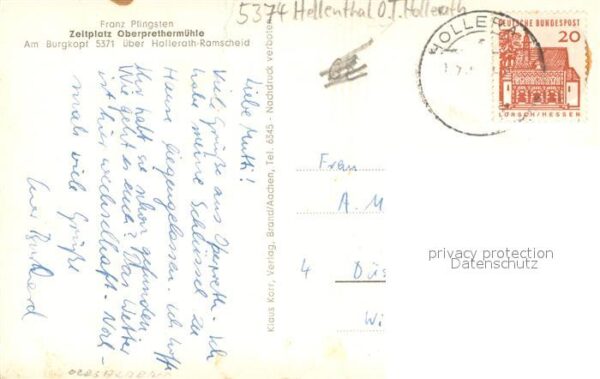 Franz Pfingsten
Zeltplatz Oberprethermühle
Am Burgkopf 5371 über Hollerath-Ramscheid
5374 Hollenthal O.T. Hollerath
HOLLERA
DEUTSCHE BUNDESPOST
20
LORSCH/HESSEN
Liebe Mutti!
Viele Grüße aus Oberpreth. Ich
habe meine Schlüssel zu
Hause liegengelassen. Ich hoffe
Ihr habt sie schon gefunden.
Wie geht es euch? Das Wetter
ist hier wechselhaft. Noch-
mals viele Grüße
Euer
Klaus Korr, Verlag, Brand/Aachen, Tel. 6545 - Nachdruck verboten
Frau
A. M
4 Düs
Wi
privacy protection
Datenschutz